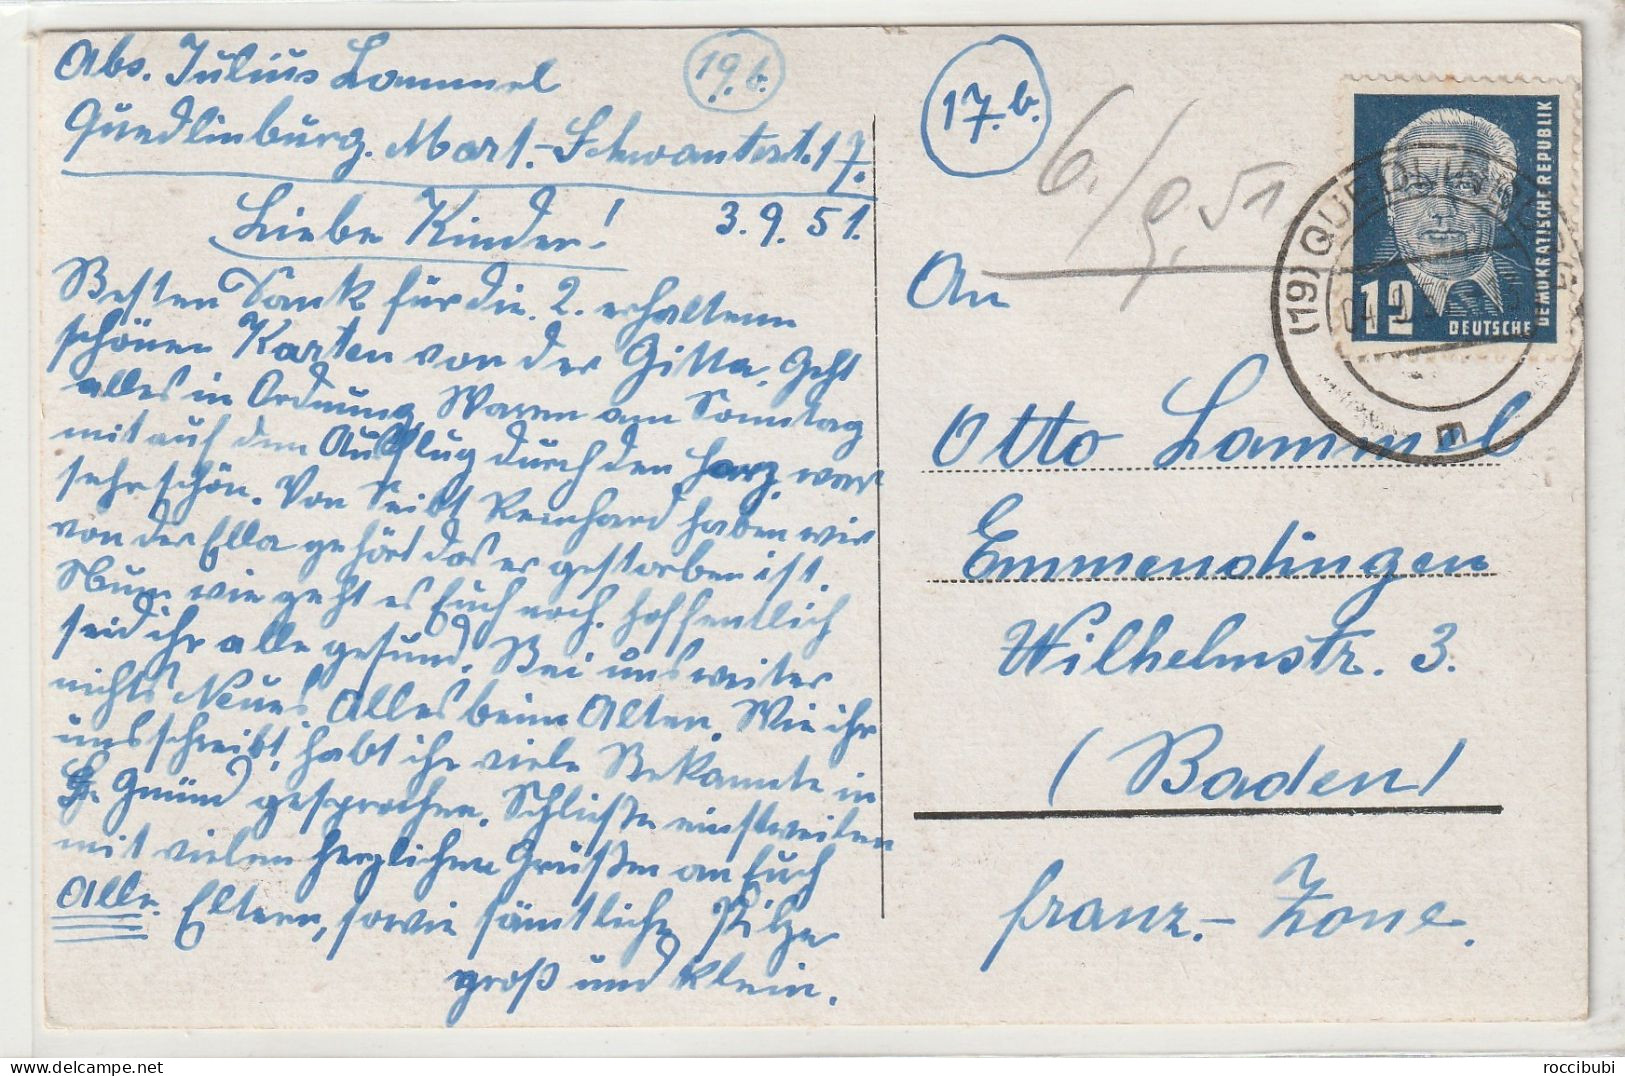 Abs. Julius Lammel
Quedlinburg. Mart.-Schwantest. 17.
19.b.
Liebe Kinder!
3.9.51.
Besten Dank für die 2. erhaltenen
schönen Karten von der Gitta. Geht
alles in Ordnung. Waren am Sonntag
mit auf dem Ausflug durch den Harz, war
sehr schön. Von Seibt Reinhard haben wir
von der Ella gehört das er gestorben ist.
Nun wie geht es Euch noch. Hoffentlich
seid ihr alle gesund. Bei uns weiter
nichts Neues Alles beim Alten. Wie ihr
uns schreibt, habt ihr viele Bekannte in
Gmünd gesprochen. Schließe einstweilen
mit vielen herzlichen Grüßen an Euch
Alle. Eltern, sowie sämtliche Pilze
groß und klein.
17.b.
6./9.51
An
Otto Lammel
Emmendingen
Wilhelmstr. 3.
(Baden)
franz.-Zone.
12
DEUTSCHE
DEMOKRATISCHE REPUBLIK
(19) QUEDLINBURG
m
delcampe.net
roccibubi